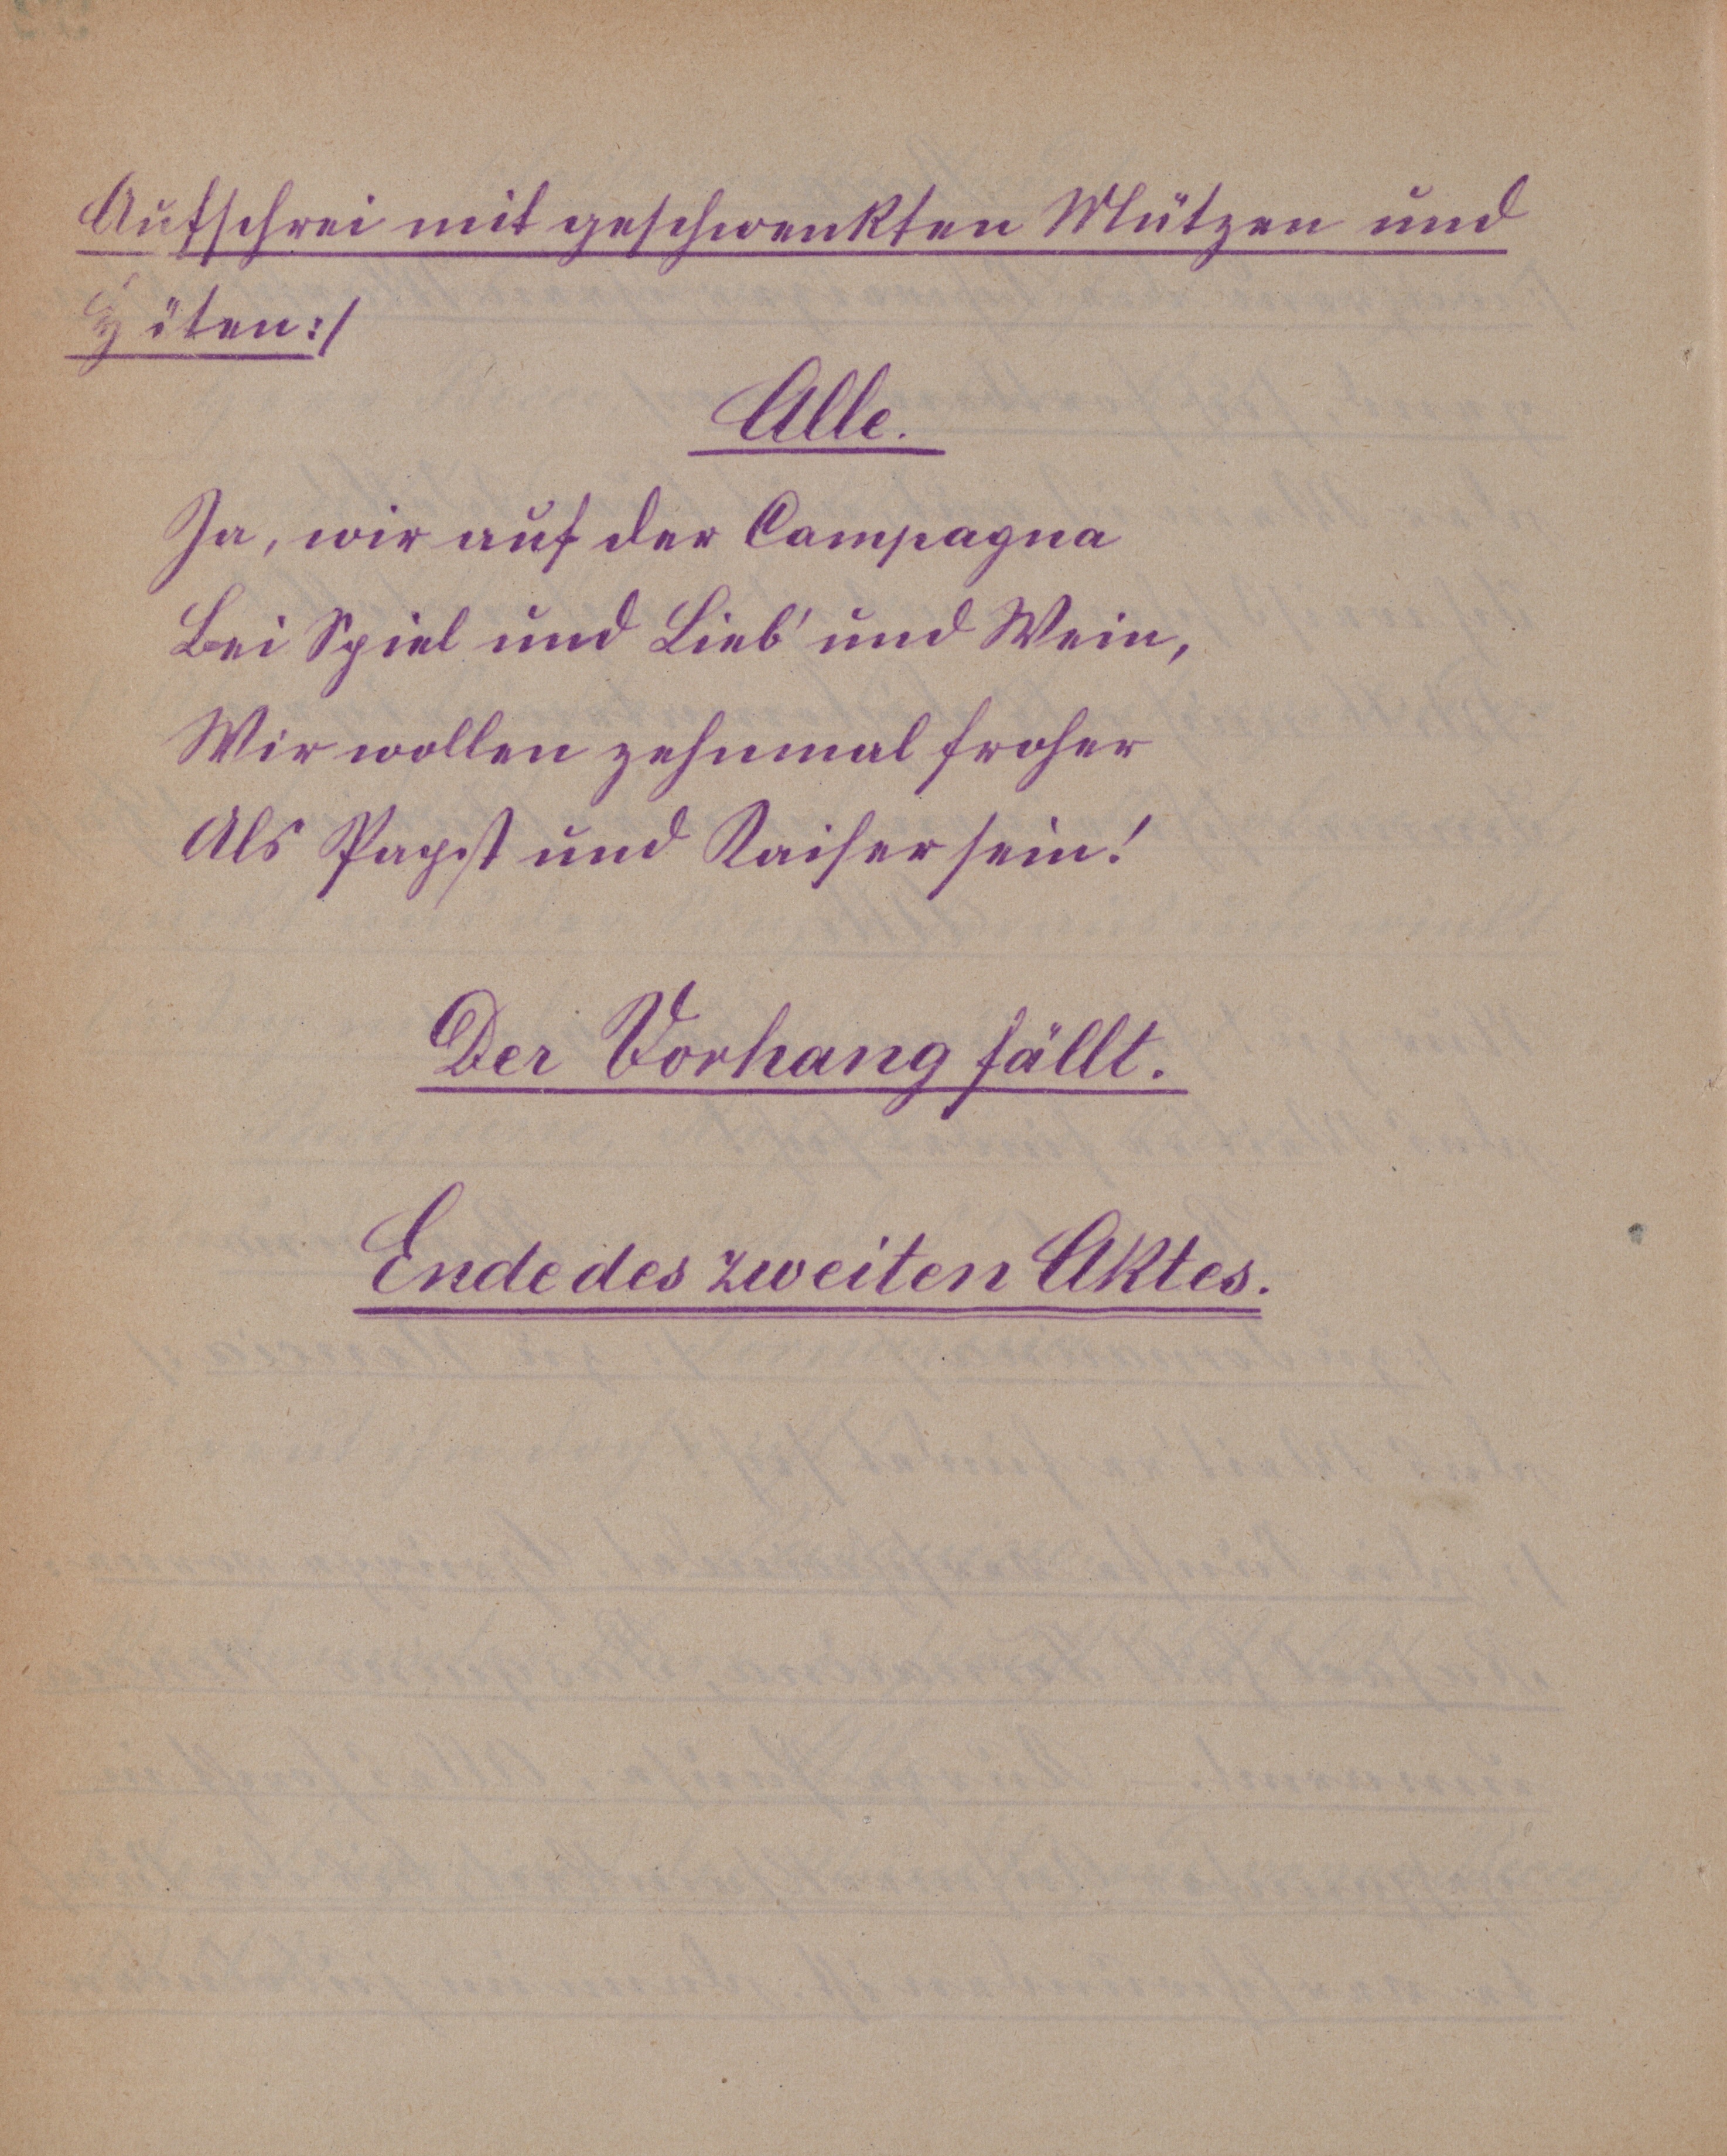 Aufschrei mit geschwenkten Mützen und
Hüten:/
Alle.
Ja, wir auf der Campagna
Bei Spiel und Lieb' und Wein,
Wir wollen zehnmal froher
Als Papst und Kaiser sein!
Der Vorhang fällt.
Ende des zweiten Aktes.